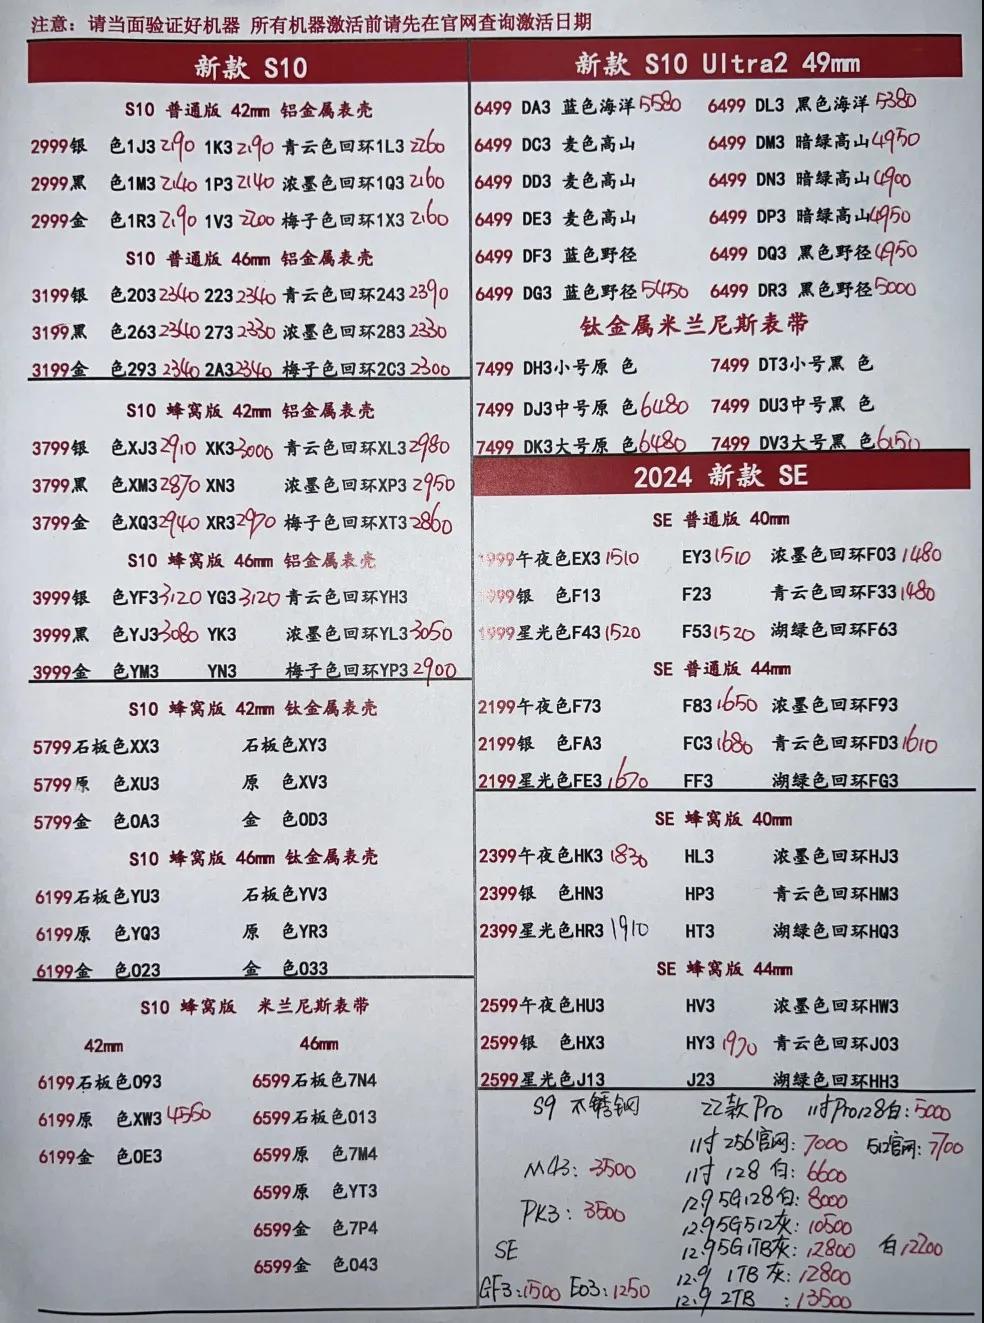 注意：请当面验证好机器 所有机器激活前请先在官网查询激活日期
新款 S10
S10 普通版 42mm 铝金属表壳
2999银 色1J3 2190 1K3 2190 青云色回环1L3 2260
2999黑 色1M3 2140 1P3 2140 浓墨色回环1Q3 2160
2999金 色1R3 2190 1V3 2200 梅子色回环1X3 2160
S10 普通版 46mm 铝金属表壳
3199银 色203 2340 223 2340 青云色回环243 2390
3199黑 色263 2340 273 2330 浓墨色回环283 2330
3199金 色293 2340 2A3 2340 梅子色回环2C3 2300
S10 蜂窝版 42mm 铝金属表壳
3799银 色XJ3 2910 XK3 3000 青云色回环XL3 2980
3799黑 色XM3 2870 XN3 浓墨色回环XP3 2950
3799金 色XQ3 2940 XR3 2970 梅子色回环XT3 2860
S10 蜂窝版 46mm 铝金属表壳
3999银 色YF3 3120 YG3 3120 青云色回环YH3
3999黑 色YJ3 3080 YK3 浓墨色回环YL3 3050
3999金 色YM3 YN3 梅子色回环YP3 2900
S10 蜂窝版 42mm 钛金属表壳
5799石板色XX3 石板色XY3
5799原 色XU3 原 色XV3
5799金 色0A3 金 色0D3
S10 蜂窝版 46mm 钛金属表壳
6199石板色YU3 石板色YV3
6199原 色YQ3 原 色YR3
6199金 色023 金 色033
S10 蜂窝版 米兰尼斯表带
42mm 46mm
6199石板色093 6599石板色7N4
6199原 色XW3 4550 6599石板色013
6199金 色0E3 6599原 色7M4
6599原 色YT3
6599金 色7P4
6599金 色043
新款 S10 Ultra2 49mm
6499 DA3 蓝色海洋 5580 6499 DL3 黑色海洋 5380
6499 DC3 麦色高山 6499 DM3 暗绿高山 4950
6499 DD3 麦色高山 6499 DN3 暗绿高山 4900
6499 DE3 麦色高山 6499 DP3 暗绿高山 4950
6499 DF3 蓝色野径 6499 DQ3 黑色野径 4950
6499 DG3 蓝色野径 5450 6499 DR3 黑色野径 5000
钛金属米兰尼斯表带
7499 DH3小号原 色 7499 DT3小号黑 色
7499 DJ3中号原 色 6480 7499 DU3中号黑 色
7499 DK3大号原 色 6480 7499 DV3大号黑 色 6150
2024 新款 SE
SE 普通版 40mm
1999午夜色EX3 1510 EY3 1510 浓墨色回环F03 1480
1999银 色F13 F23 青云色回环F33 1480
1999星光色F43 1520 F53 1520 湖绿色回环F63
SE 普通版 44mm
2199午夜色F73 F83 1650 浓墨色回环F93
2199银 色FA3 FC3 1680 青云色回环FD3 1610
2199星光色FE3 1670 FF3 湖绿色回环FG3
SE 蜂窝版 40mm
2399午夜色HK3 1830 HL3 浓墨色回环HJ3
2399银 色HN3 HP3 青云色回环HM3
2399星光色HR3 1910 HT3 湖绿色回环HQ3
SE 蜂窝版 44mm
2599午夜色HU3 HV3 浓墨色回环HW3
2599银 色HX3 HY3 1970 青云色回环J03
2599星光色J13 J23 湖绿色回环HH3
S9 不锈钢
M43: 3500
PK3: 3500
SE
GF3:1500 E03:1250
22款Pro 11寸Pro128白: 5000
11寸 256官网: 7000 512官网: 7700
11寸 128 白: 6600
12.9 5G128白: 8000
12.9 5G512灰: 10500
12.9 5G1TB灰: 12800 白12200
12.9 1TB 灰: 12800
12.9 2TB : 13500